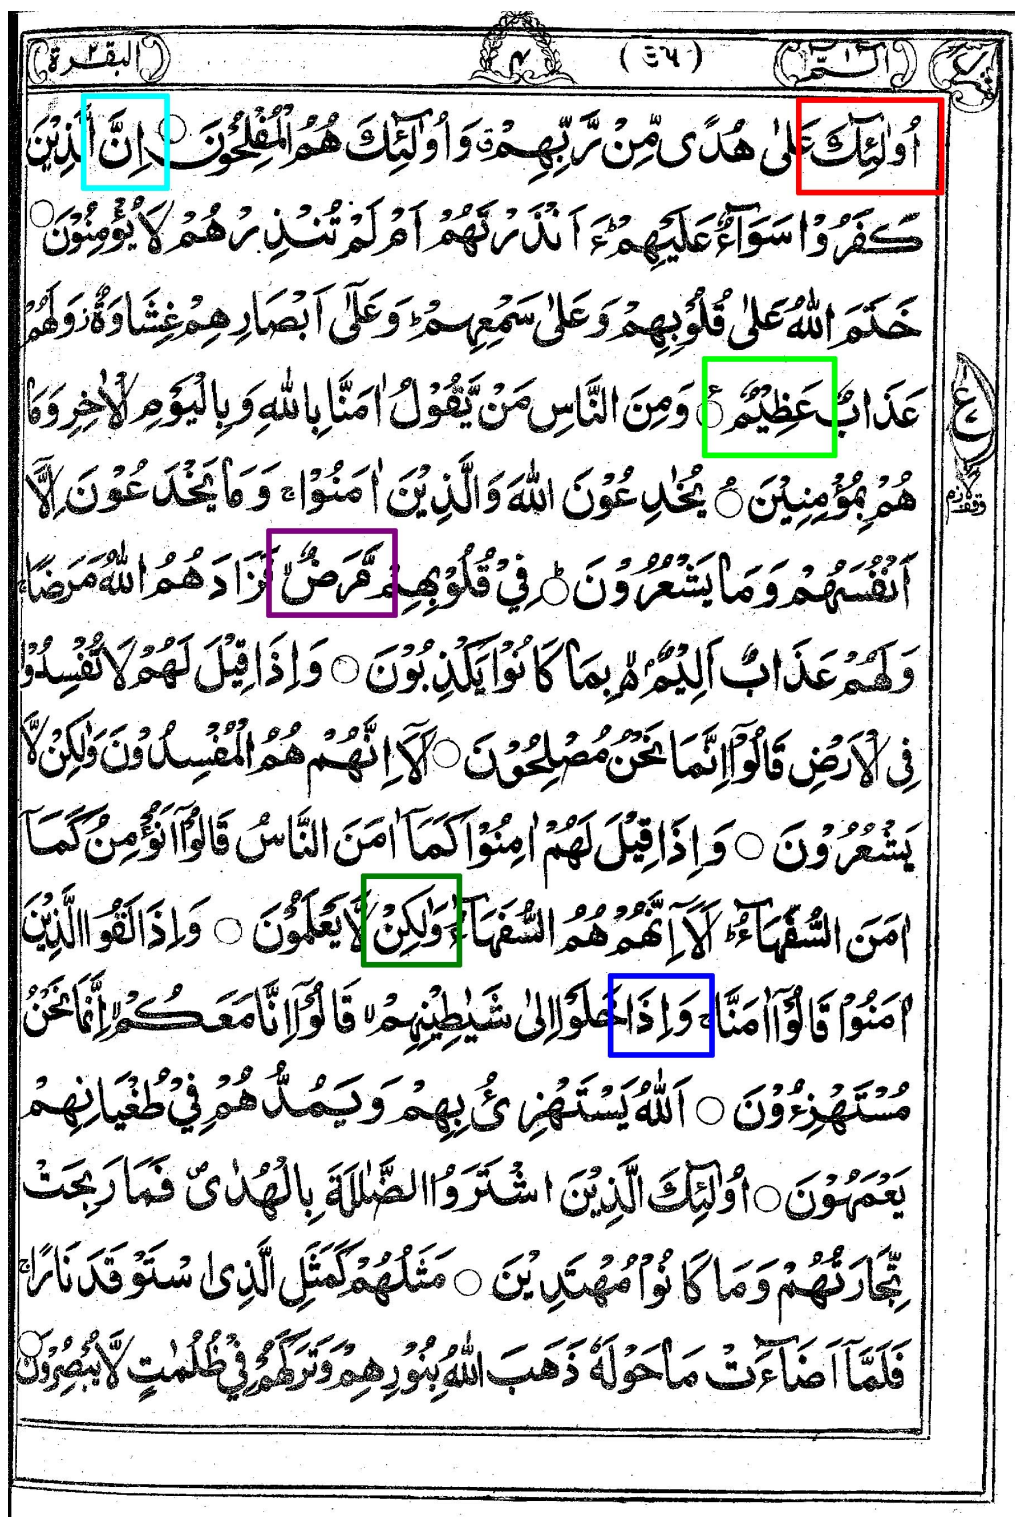 البقرة ٢ ٤ (٤٦) السم ١
اُولٰٓئِكَ عَلٰى هُدًى مِّنْ رَّبِّهِمْ ۤ وَاُولٰٓئِكَ هُمُ الْمُفْلِحُوْنَ ۝ اِنَّ الَّذِيْنَ
كَفَرُوْا سَوَآءٌ عَلَيْهِمْ ءَاَنْذَرْتَهُمْ اَمْ لَمْ تُنْذِرْهُمْ لَا يُؤْمِنُوْنَ ۝
خَتَمَ اللّٰهُ عَلٰى قُلُوْبِهِمْ وَعَلٰى سَمْعِهِمْ ؕ وَعَلٰٓى اَبْصَارِهِمْ غِشَاوَةٌ ز وَلَهُمْ
عَذَابٌ عَظِيْمٌ ۝ وَمِنَ النَّاسِ مَنْ يَّقُوْلُ اٰمَنَّا بِاللّٰهِ وَبِالْيَوْمِ الْاٰخِرِ وَمَا
هُمْ بِمُؤْمِنِيْنَ ۝ يُخٰدِعُوْنَ اللّٰهَ وَالَّذِيْنَ اٰمَنُوْا ۚ وَمَا يَخْدَعُوْنَ اِلَّآ
اَنْفُسَهُمْ وَمَا يَشْعُرُوْنَ ۝ؕ فِيْ قُلُوْبِهِمْ مَّرَضٌ ۙ فَزَادَهُمُ اللّٰهُ مَرَضًا ۚ
وَلَهُمْ عَذَابٌ اَلِيْمٌ ۢ ۙ بِمَا كَانُوْا يَكْذِبُوْنَ ۝ وَاِذَا قِيْلَ لَهُمْ لَا تُفْسِدُوْا
فِى الْاَرْضِ قَالُوْٓا اِنَّمَا نَحْنُ مُصْلِحُوْنَ ۝ اَلَآ اِنَّهُمْ هُمُ الْمُفْسِدُوْنَ وَلٰكِنْ لَّا
يَشْعُرُوْنَ ۝ وَاِذَا قِيْلَ لَهُمْ اٰمِنُوْا كَمَآ اٰمَنَ النَّاسُ قَالُوْٓا اَنُؤْمِنُ كَمَآ
اٰمَنَ السُّفَهَآءُ ؕ اَلَآ اِنَّهُمْ هُمُ السُّفَهَآءُ وَلٰكِنْ لَّا يَعْلَمُوْنَ ۝ وَاِذَا لَقُوا الَّذِيْنَ
اٰمَنُوْا قَالُوْٓا اٰمَنَّا ۚ وَاِذَا خَلَوْا اِلٰى شَيٰطِيْنِهِمْ ۙ قَالُوْٓا اِنَّا مَعَكُمْ ۙ اِنَّمَا نَحْنُ
مُسْتَهْزِءُوْنَ ۝ اَللّٰهُ يَسْتَهْزِئُ بِهِمْ وَيَمُدُّهُمْ فِيْ طُغْيَانِهِمْ
يَعْمَهُوْنَ ۝ اُولٰٓئِكَ الَّذِيْنَ اشْتَرَوُا الضَّلٰلَةَ بِالْهُدٰى ۪ فَمَا رَبِحَتْ
تِّجَارَتُهُمْ وَمَا كَانُوْا مُهْتَدِيْنَ ۝ مَثَلُهُمْ كَمَثَلِ الَّذِى اسْتَوْقَدَ نَارًا ۚ
فَلَمَّآ اَضَآءَتْ مَا حَوْلَهٗ ذَهَبَ اللّٰهُ بِنُوْرِهِمْ وَتَرَكَهُمْ فِيْ ظُلُمٰتٍ لَّا يُبْصِرُوْنَ ۝
ع
وقف لازم